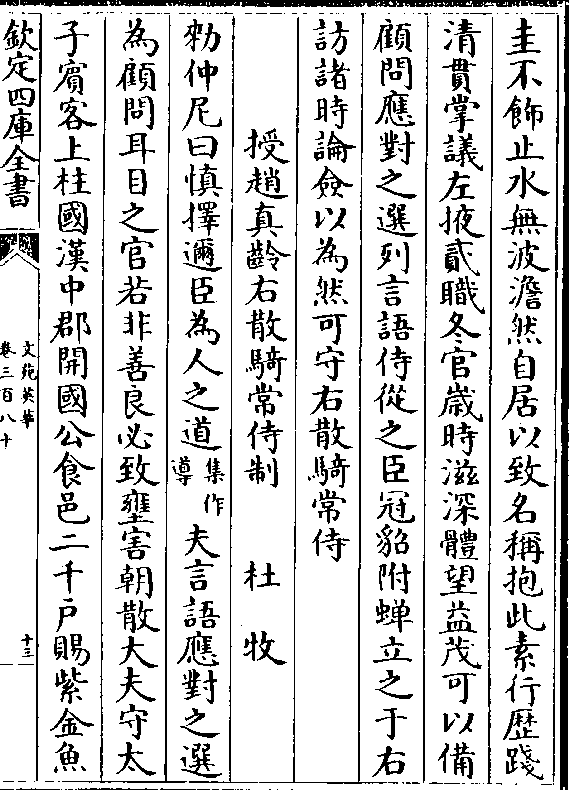 圭不飾止水無波澹然自居以致名稱抱此素行歷踐
清貫掌議左掖貳職冬官嵗時滋深體望益茂可以備
顧問應對之選列言語侍從之臣冠貂附蟬立之于右
訪諸時論僉以為然可守右散騎常侍
授趙真齡右散騎常侍制 杜牧
勑仲尼曰慎擇邇臣為人之道集作導夫言語應對之選
為顧問耳目之官若非善良必致壅害朝散大夫守太
子賓客上柱國漢中郡開國公食邑二千戶賜紫金魚
欽定四庫全書
文苑英華
卷三百八十
十三